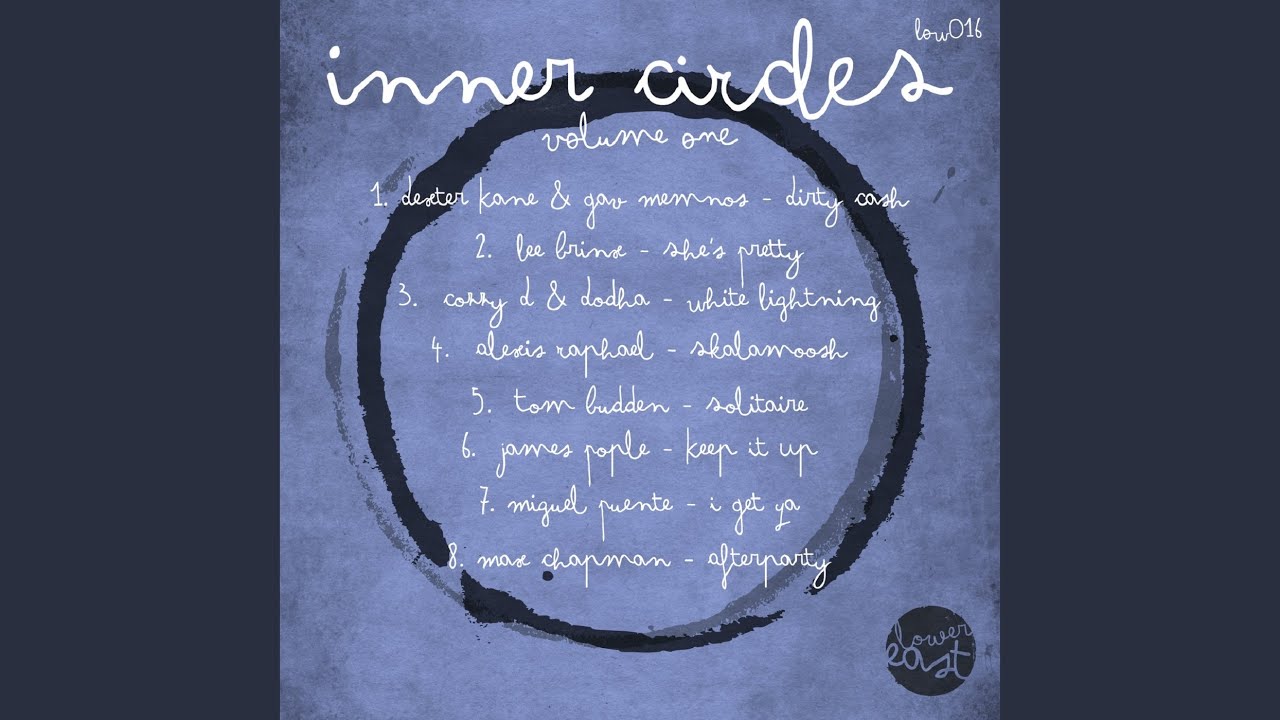 low016
inner circles
volume one
1. dexter kane & gav memnos - dirty cash
2. lee brinx - she's pretty
3. cozzy d & dodha - white lightning
4. alexis raphael - skalamoosh
5. tom budden - solitaire
6. james pople - keep it up
7. miguel puente - i get ya
8. max chapman - afterparty
lower
east